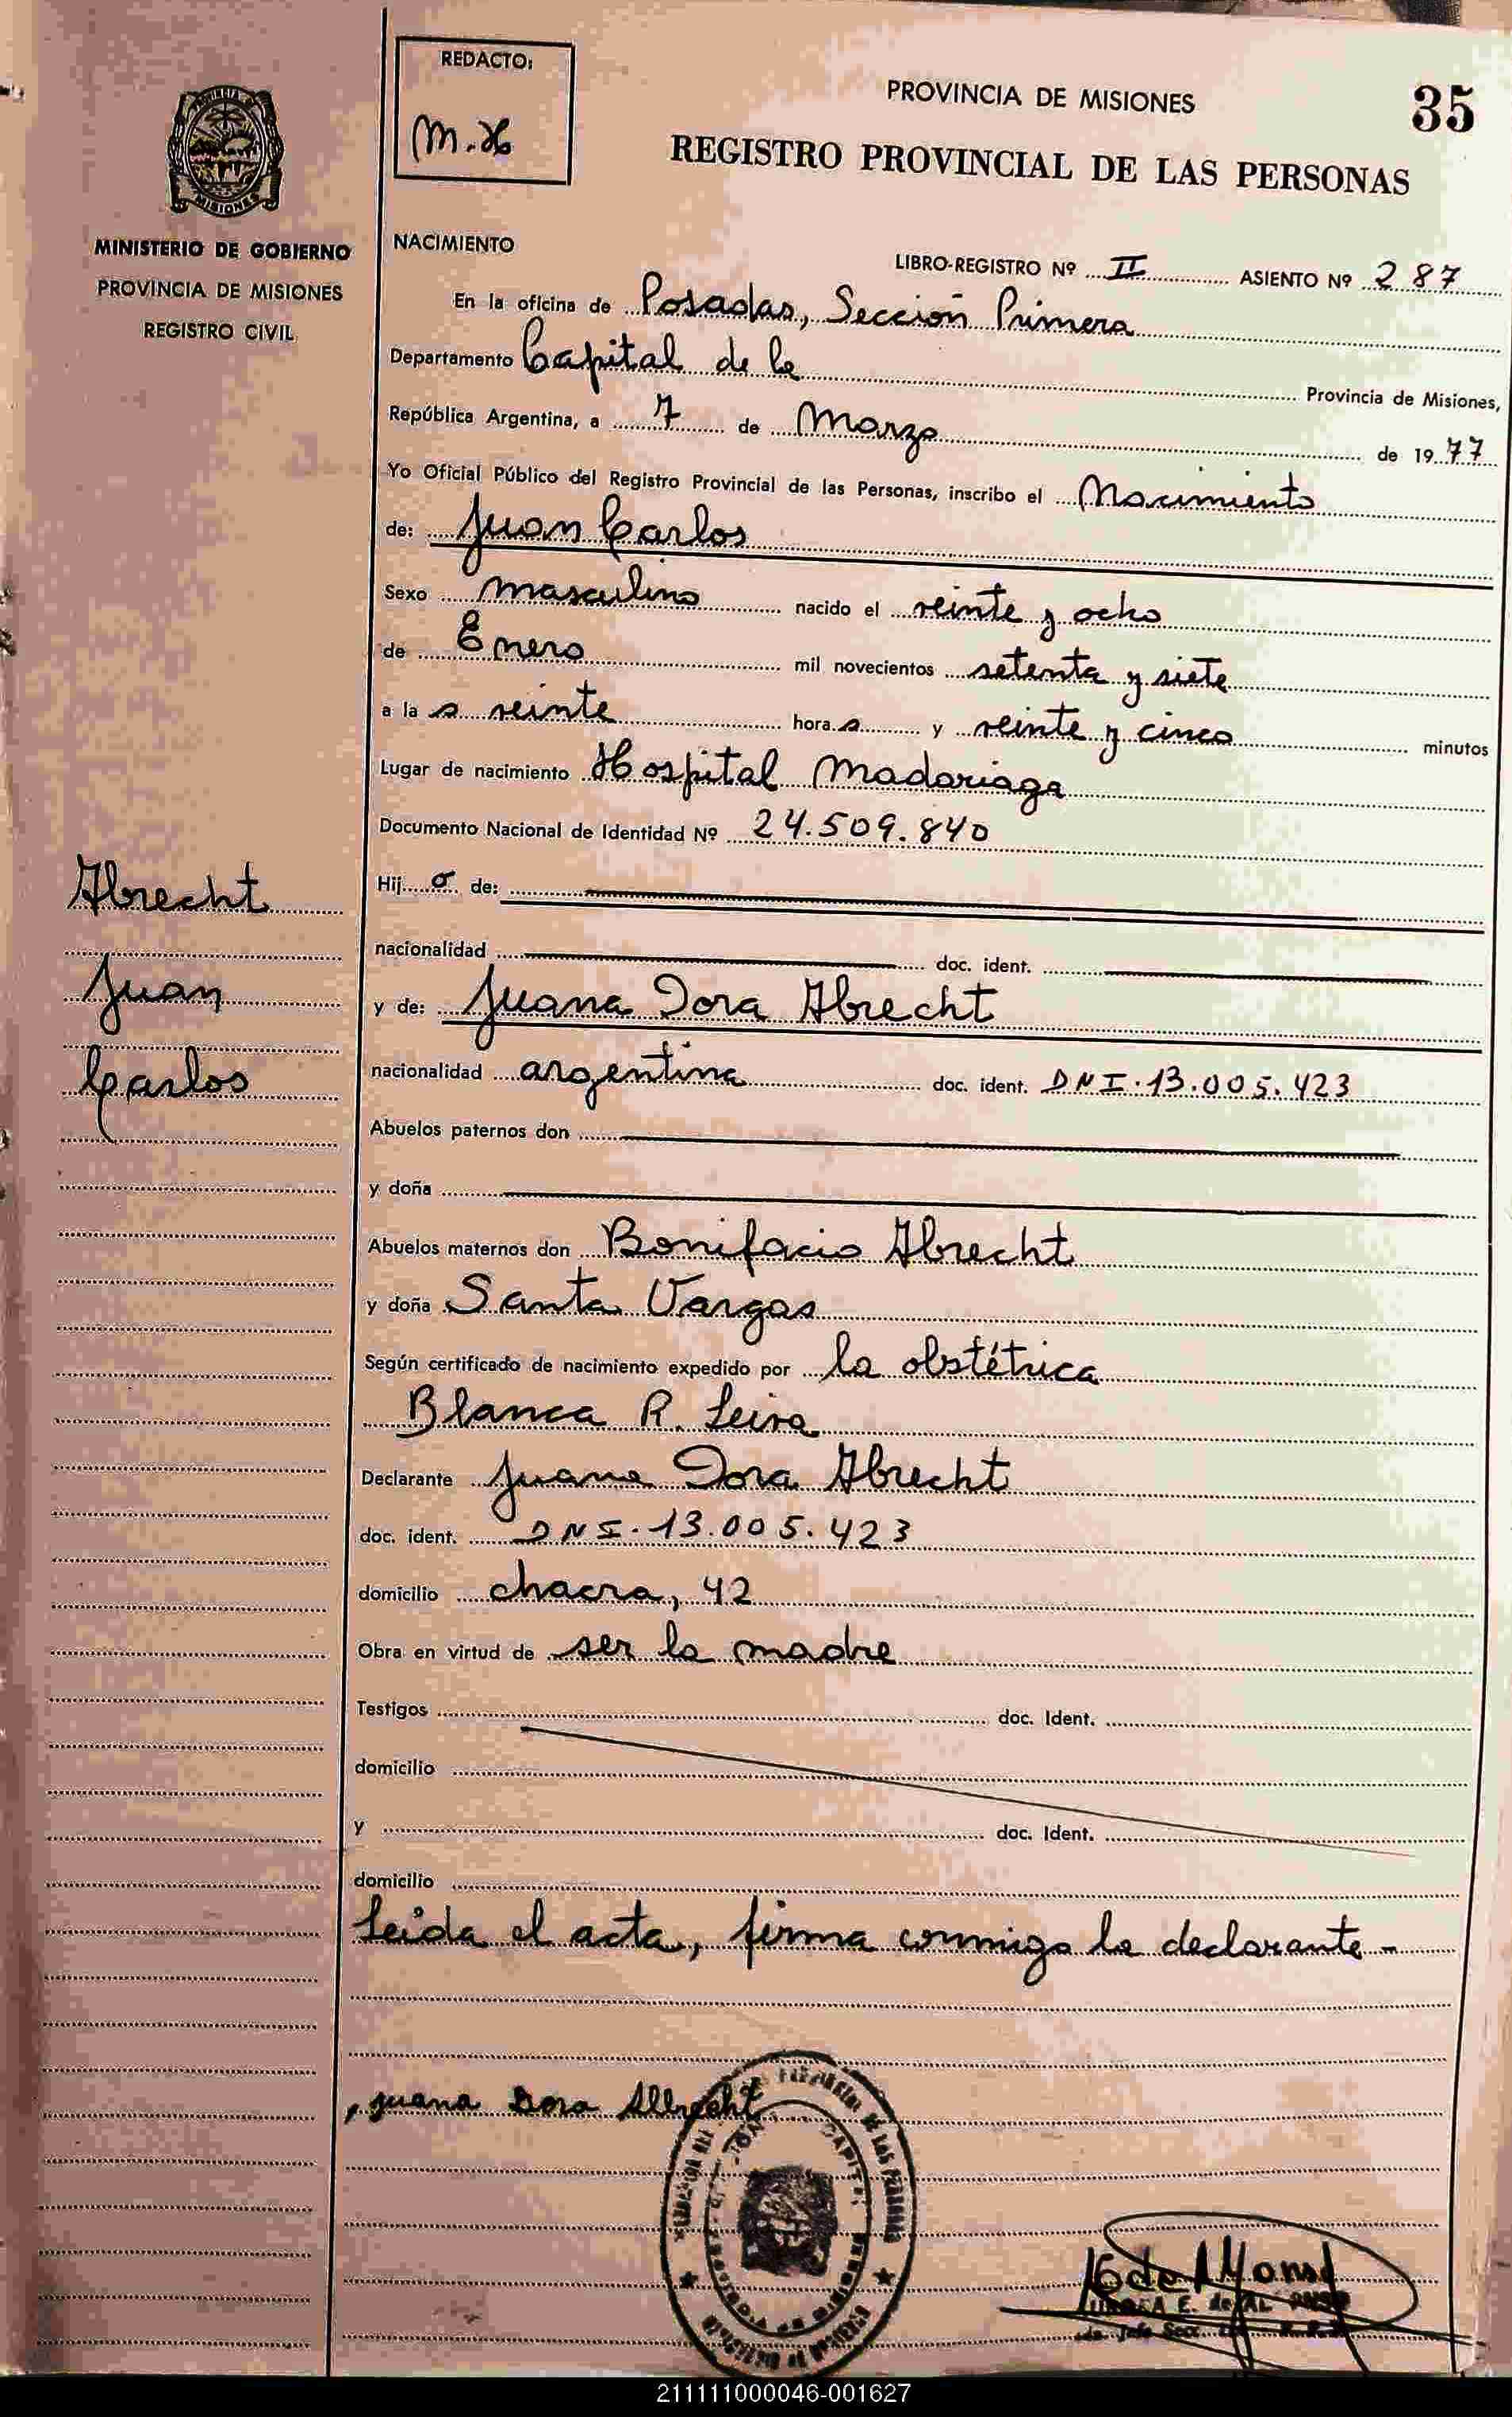 REDACTO:
M.H
PROVINCIA DE MISIONES
35
REGISTRO PROVINCIAL DE LAS PERSONAS
MISIONES
MINISTERIO DE GOBIERNO
PROVINCIA DE MISIONES
REGISTRO CIVIL
NACIMIENTO
LIBRO-REGISTRO Nº II ASIENTO Nº 287
En la oficina de Posadas, Sección Primera
Departamento Capital de la Provincia de Misiones,
República Argentina, a 7 de Marzo de 1977
Yo Oficial Público del Registro Provincial de las Personas, inscribo el Nacimiento
de: Juan Carlos
Sexo masculino nacido el veinte y ocho
de Enero mil novecientos setenta y siete
a la s veinte hora s y veinte y cinco minutos
Lugar de nacimiento Hospital Madariaga
Documento Nacional de Identidad Nº 24.509.840
Hij o de:
nacionalidad doc. ident.
y de: Juana Dora Abrecht
nacionalidad argentina doc. ident. DNI.13.005.423
Abuelos paternos don
y doña
Abuelos maternos don Bonifacio Abrecht
y doña Santa Vargas
Según certificado de nacimiento expedido por la obstétrica
Blanca R. Leiva
Declarante Juana Dora Abrecht
doc. ident. DNI.13.005.423
domicilio chacra, 42
Obra en virtud de ser la madre
Testigos doc. Ident.
domicilio
y doc. Ident.
domicilio
Leída el acta, firma conmigo la declarante-
Abrecht
Juan
Carlos
Juana Dora Albrecht
211111000046-001627